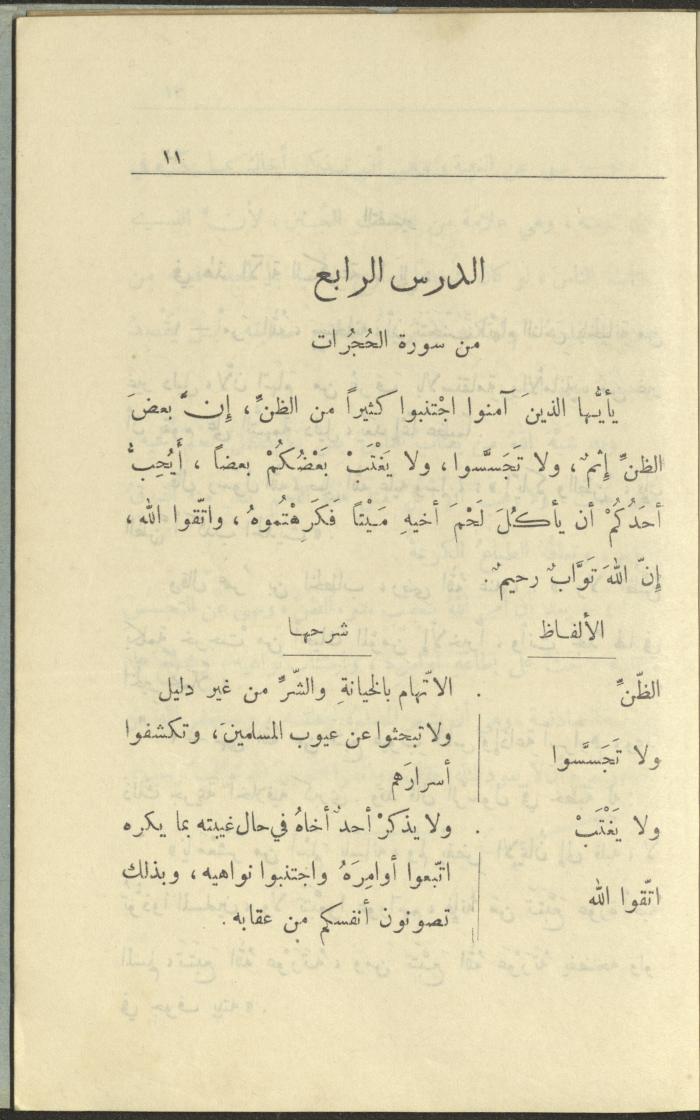 ١١
الدرس الرابع
من سورة الحُجُرات
يأيُّها الذينَ آمنوا اجْتنبوا كثيراً من الظنِّ، إِنَّ بعضَ
الظنِّ إِثمٌ، ولا تَجَسَّسوا، ولا يَغْتَبْ بَعْضُكُمْ بعضاً، أَيُحِبُّ
أحَدُكُمْ أن يأكُلَ لَحْمَ أخيهِ مَيْتاً فَكَرِهْتُموهُ، واتّقوا الله،
إِنّ اللهَ تَوَّابٌ رحيمٌ.
الألفاظ شرحها
الظّنِّ . الاتّهام بالخيانةِ والشّرِّ من غير دليل
ولا تَجَسَّسوا ولا تبحثوا عن عيوب المسلمينَ، وتكشفوا
أسرارَهم
ولا يَغْتَبْ . ولا يذكرْ أحدٌ أخاهُ في حال غيبته بما يكره
اتّقوا الله اتّبعوا أوامِرَهُ واجتنبوا نواهيه، وبذلك
تصونون أنفسكم من عقابه.